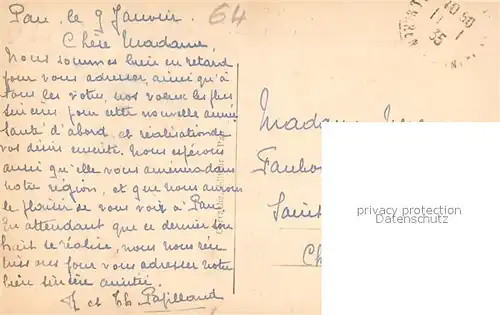 Pau, le 9 Janvier. 64
Chère Madame,
Nous sommes bien en retard
pour vous adresser, ainsi qu'à
tous les votres, nos voeux les plus
sincères pour cette nouvelle année
santé d'abord, et réalisation de
vos désirs ensuite. Nous espérons
aussi qu'elle vous amènera dans
notre région, et que nous aurons
le plaisir de vous voir à Pau.
En attendant que ce dernier sou
hait se réalise, nous nous réu
nissons pour vous adresser notre
bien sincère amitié.
et Papilland
10 50
11 1
35
Madame
Faubo
Saint
Ch
privacy protection
Datenschutz